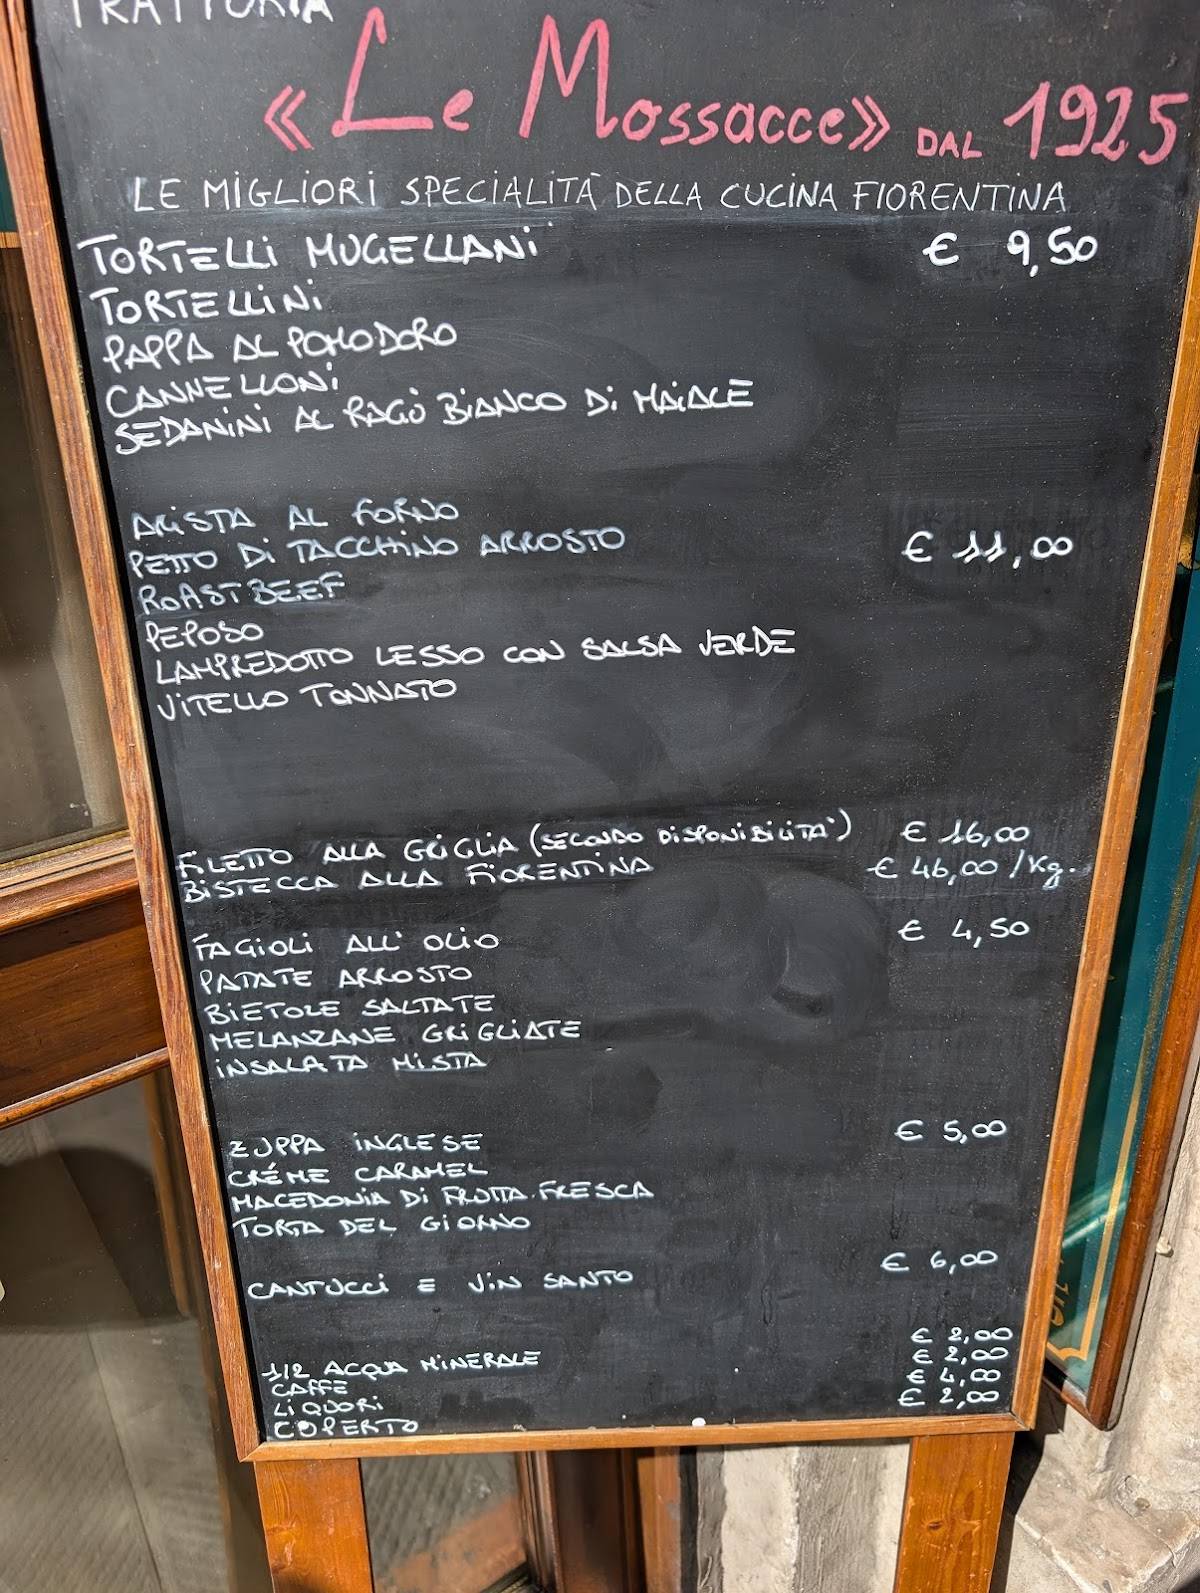 TRATTORIA
«Le Mossacce» DAL 1925
LE MIGLIORI SPECIALITÀ DELLA CUCINA FIORENTINA
TORTELLI MUGELLANI € 9,50
TORTELLINI
PAPPA AL POMODORO
CANNELLONI
SEDANINI AL RAGÙ BIANCO DI MAIALE
ARISTA AL FORNO
PETTO DI TACCHINO ARROSTO € 11,00
ROAST BEEF
PEPOSO
LAMPREDOTTO LESSO CON SALSA VERDE
VITELLO TONNATO
FILETTO ALLA GRIGLIA (SECONDO DISPONIBILITA') € 16,00
BISTECCA ALLA FIORENTINA € 46,00/Kg.
FAGIOLI ALL' OLIO € 4,50
PATATE ARROSTO
BIETOLE SALTATE
MELANZANE GRIGLIATE
INSALATA MISTA
ZUPPA INGLESE € 5,00
CRÉME CARAMEL
MACEDONIA DI FRUTTA FRESCA
TORTA DEL GIORNO
CANTUCCI E VIN SANTO € 6,00
1/2 ACQUA MINERALE € 2,00
CAFFE € 2,00
LIQUORI € 4,00
COPERTO € 2,00